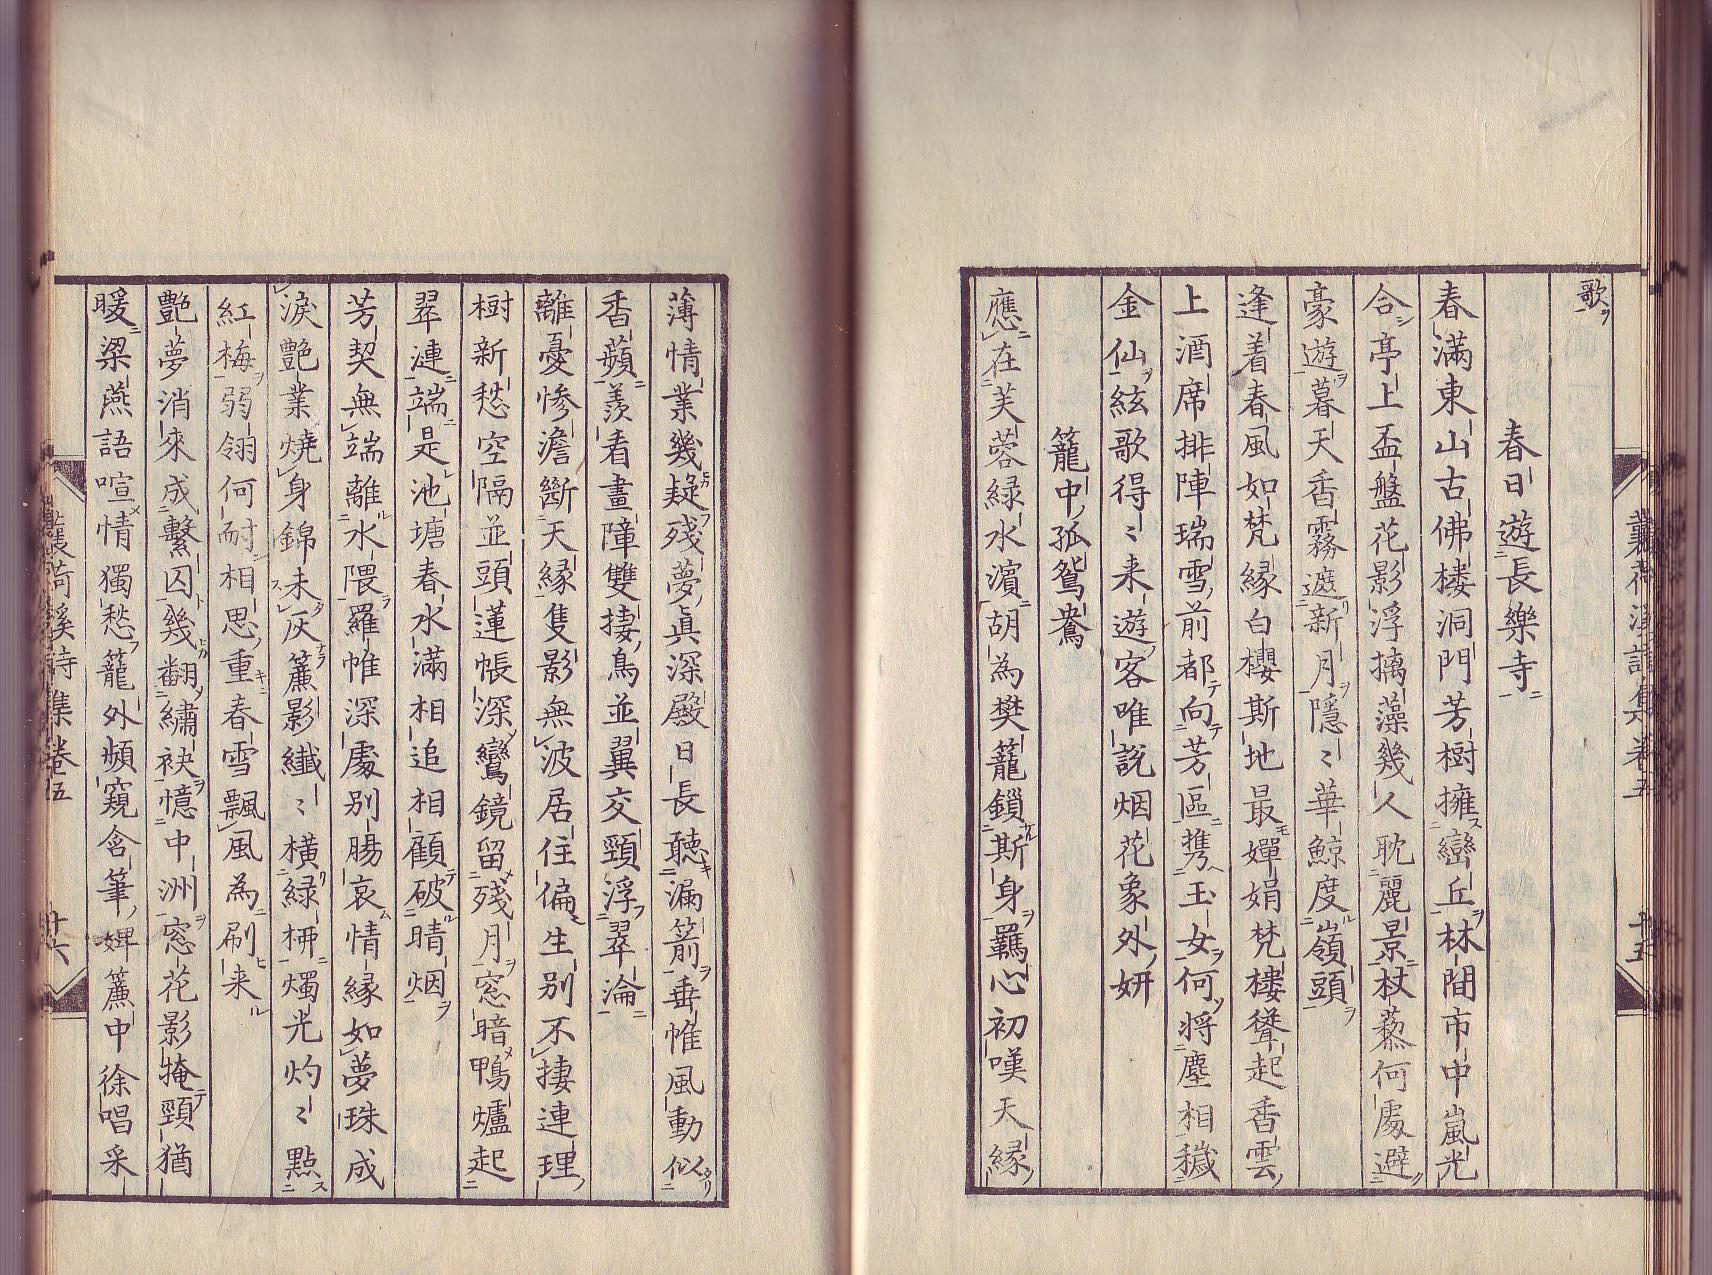 歌
春日遊長樂寺
春滿東山古佛楼洞門芳樹擁巒丘林間市中嵐光
合亭上盃盤花影浮摛藻幾人耽麗景杖藜何處避
豪遊暮天香霧遮新月隱〻華鯨度嶺頭
逢着春風如梵縁白櫻斯地最嬋娟梵楼聳起香雲
上酒席排陣瑞雪前都向芳區携玉女何將塵相穢
金仙絃歌得〻来遊客唯說烟花象外妍
籠中孤鴛鴦
應在芙蓉緑水濱胡為樊籠鎖斯身羈心初嘆天縁
薄情業幾疑残夢眞深殿日長聽漏箭垂帷風動似
香蘋羨看畫障雙捿鳥並翼交頸浮翠淪
離憂惨澹斷天縁隻影無波居住偏生別不捿連理
樹新愁空隔並頭蓮帳深鸞鏡留残月窓暗鴨爐起
翠漣端是池塘春水滿相追相顧破晴烟
芳契無端離水隈羅帷深處別腸哀情縁如夢珠成
淚艷業燒身錦未灰簾影纖〻横緑枏燭光灼〻點
紅梅弱翎何耐相思重春雪飄風為刷来
艷夢消來成繫囚幾翻繡袂憶中洲窓花影掩頸猶
暖梁燕語喧情獨愁籠外頻窺含筆婢簾中徐唱采
蘘荷溪詩集卷五
十五
蘘荷溪詩集卷五
十六